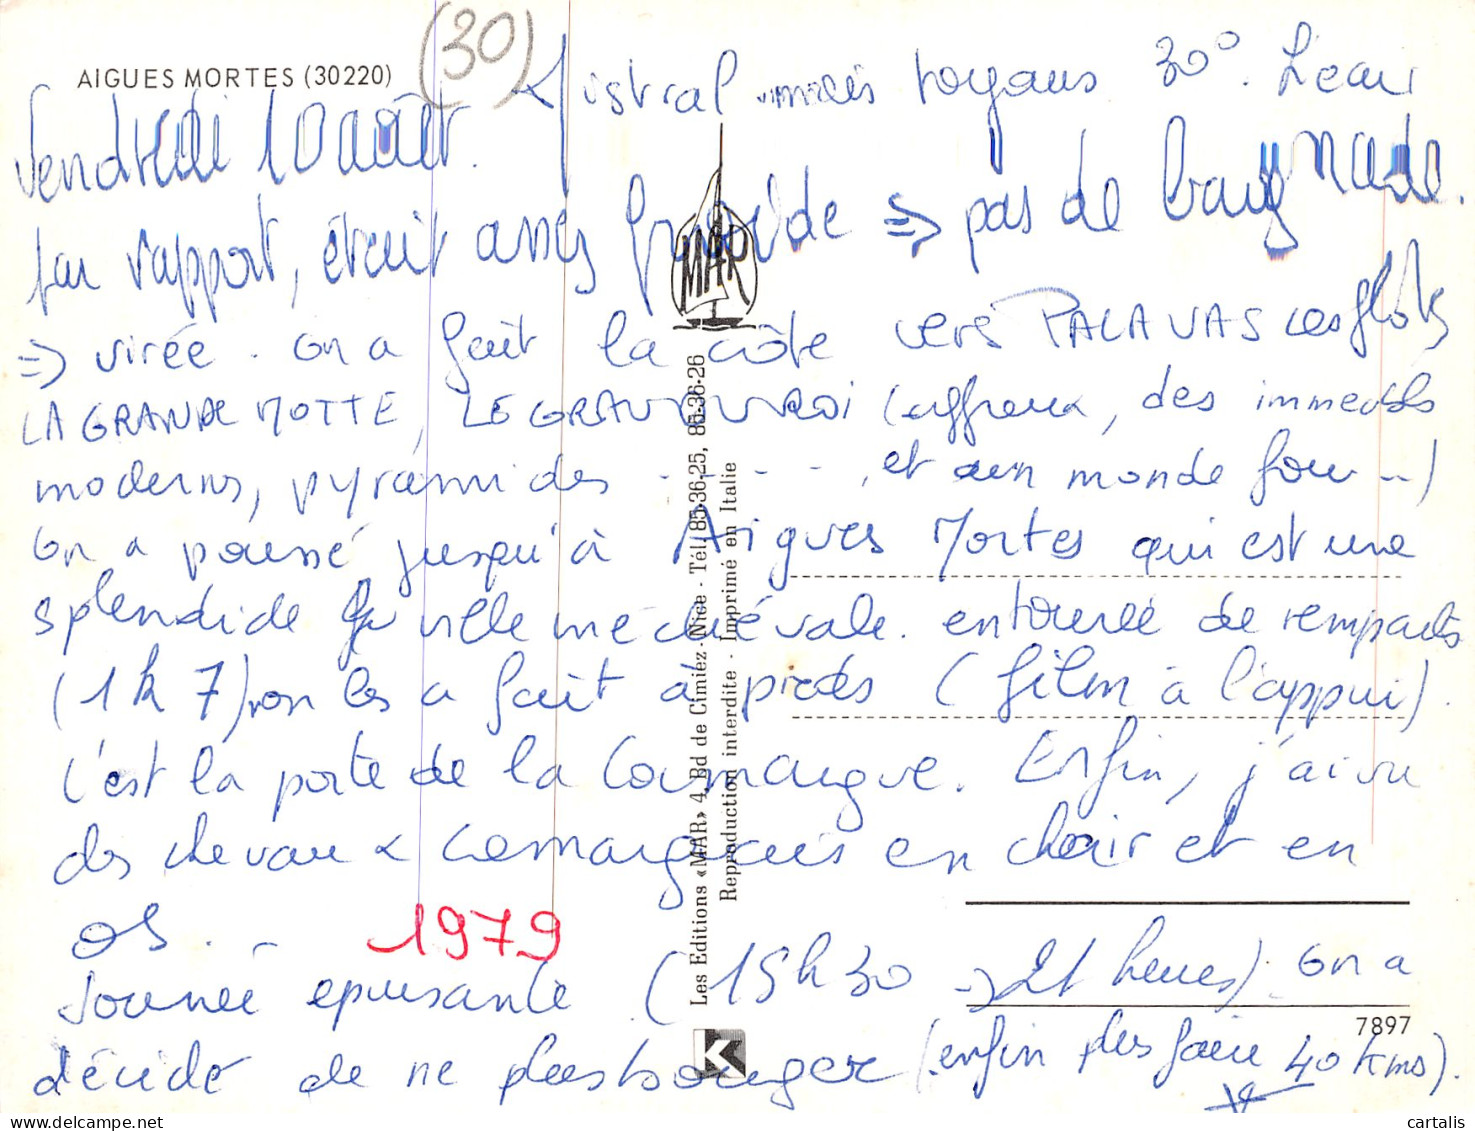 (30)
AIGUES MORTES (30220)
Vendredi 10 août. Mistral mais toyaus 30°. L'eau
par rapport, était assez froide => pas de baignade.
=> virée. on a fait la côte vers PALAVAS les flots
LA GRANDE MOTTE, LE GRAU DU ROI (affreux, des immeubles
modernes, pyramides - - - -, et un monde fou --)
on a poussé jusqu'à Aigues Mortes qui est une
splendide ville médiévale. entourée de remparts
(1 k 7) on les a fait à pieds (film à l'appui).
C'est la porte de la Camargue. Enfin, j'ai vu
des chevaux camarguais en chair et en
os. -
1979
Journée épuisante (15h30 -> 21 heures). on a
décidé de ne plus bouger (enfin plus faire 40 kms).
MAR
Les Editions «MAR» 4, Bd de Cimiez - Nice - Tel. 85-36-25, 85-36-26
Reproduction interdite - Imprimé en Italie
K
7897
cartalis